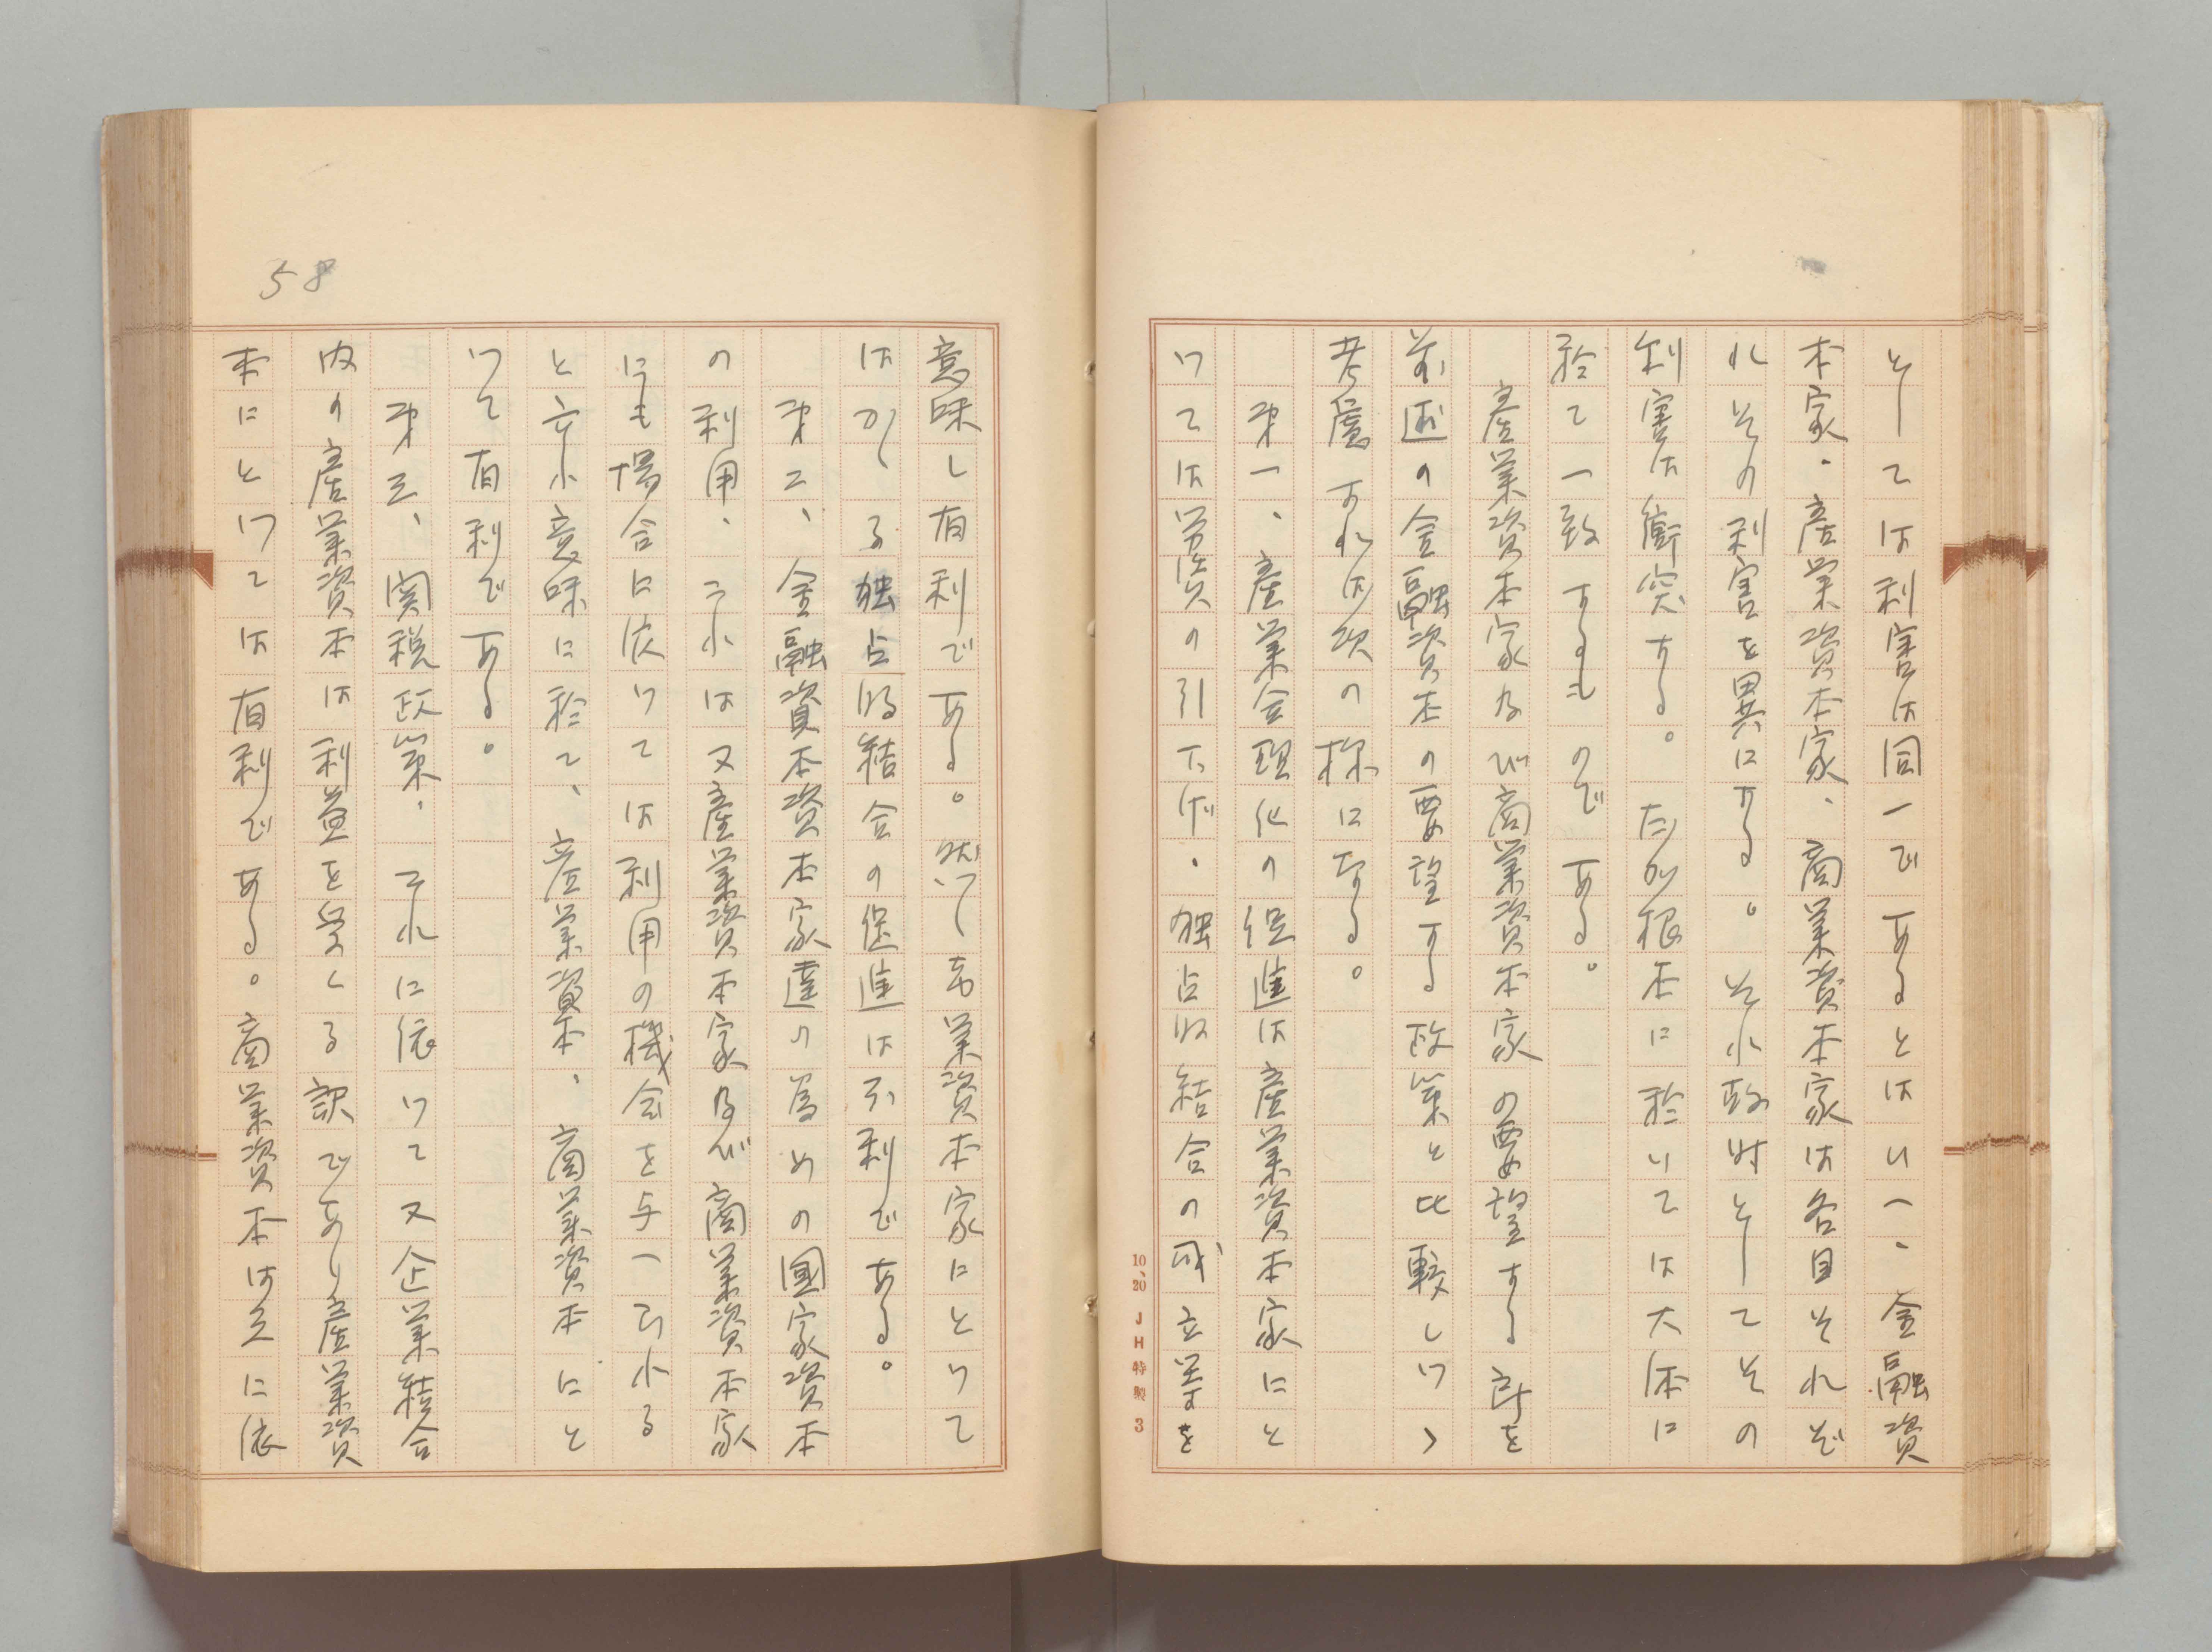 としては利害は同一であるとはいへ、金融資
本家・産業資本家、商業資本家は各自それぞ
れその利害を異にする。それ故時としてその
利害は衝突する。だが根本に於いては大体に
於て一致するものである。
産業資本家及び商業資本家の要望する所を
前述の金融資本の要望する政策と比較しつゝ
考慮すれば次の様になる。
第一、産業合理化の促進は産業資本家にと
つては労賃の引下げ・独占的結合の成立等を
10、20 JH特製 3
意味し有利である。然しも業資本家にとつて
はかゝる独占的結合の促進は不利である。
第二、金融資本資本家達の為めの国家資本
の利用、これは又産業資本家及び商業資本家
にも場合に依つては利用の機会を与へられる
と云ふ意味に於て、産業資本、商業資本にと
つて有利である。
第三、関税政策、それに依つて又企業結合
内の産業資本は利益を受くる訳であり産業資
本にとつては有利である。商業資本は之に依
58